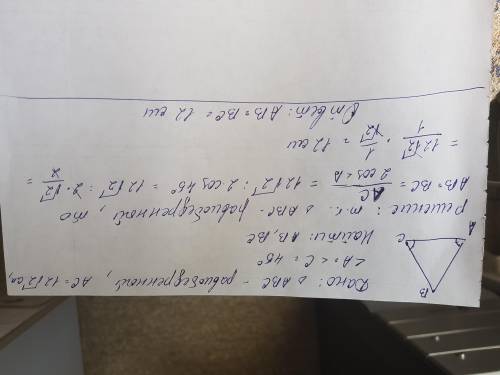 Дано: △ABC - равнобедренный, AC = 12√2 см,
<A = <C = 45°
Найти: AB, BC
A
B
C
Решение: т.к. △ABC - равнобедренный, то
AB = BC = AC / 2 cos <A = 12√2 : 2 cos 45° = 12√2 : 2·√2/2 =
= 12√2/1 · 1/√2 = 12 см
Ответ: AB = BC = 12 см